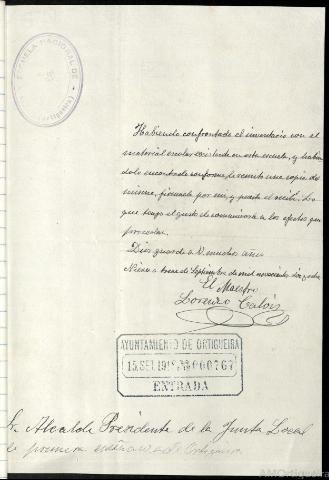 ESCUELA NACIONAL DE
Habiendo confrontado el inventario con el
material escolar existente en esta escuela, y habién
dolo encontrado conforme, le remito una copia del
mismo, firmada por mi, y puesto el recibí. Lo
que tengo el gusto de comunicarle a los efectos que
procedan.
Dios guarde a V. muchos años
a trece de Septiembre de mil novecientos
El Maestro
Lorenzo
AYUNTAMIENTO DE ORTIGUEIRA
15 SEL 000767
ENTRADA
Sr. Alcalde Presidente de la Junta Local
de primera enseñanza de Ortigueira
AMOrtigueira